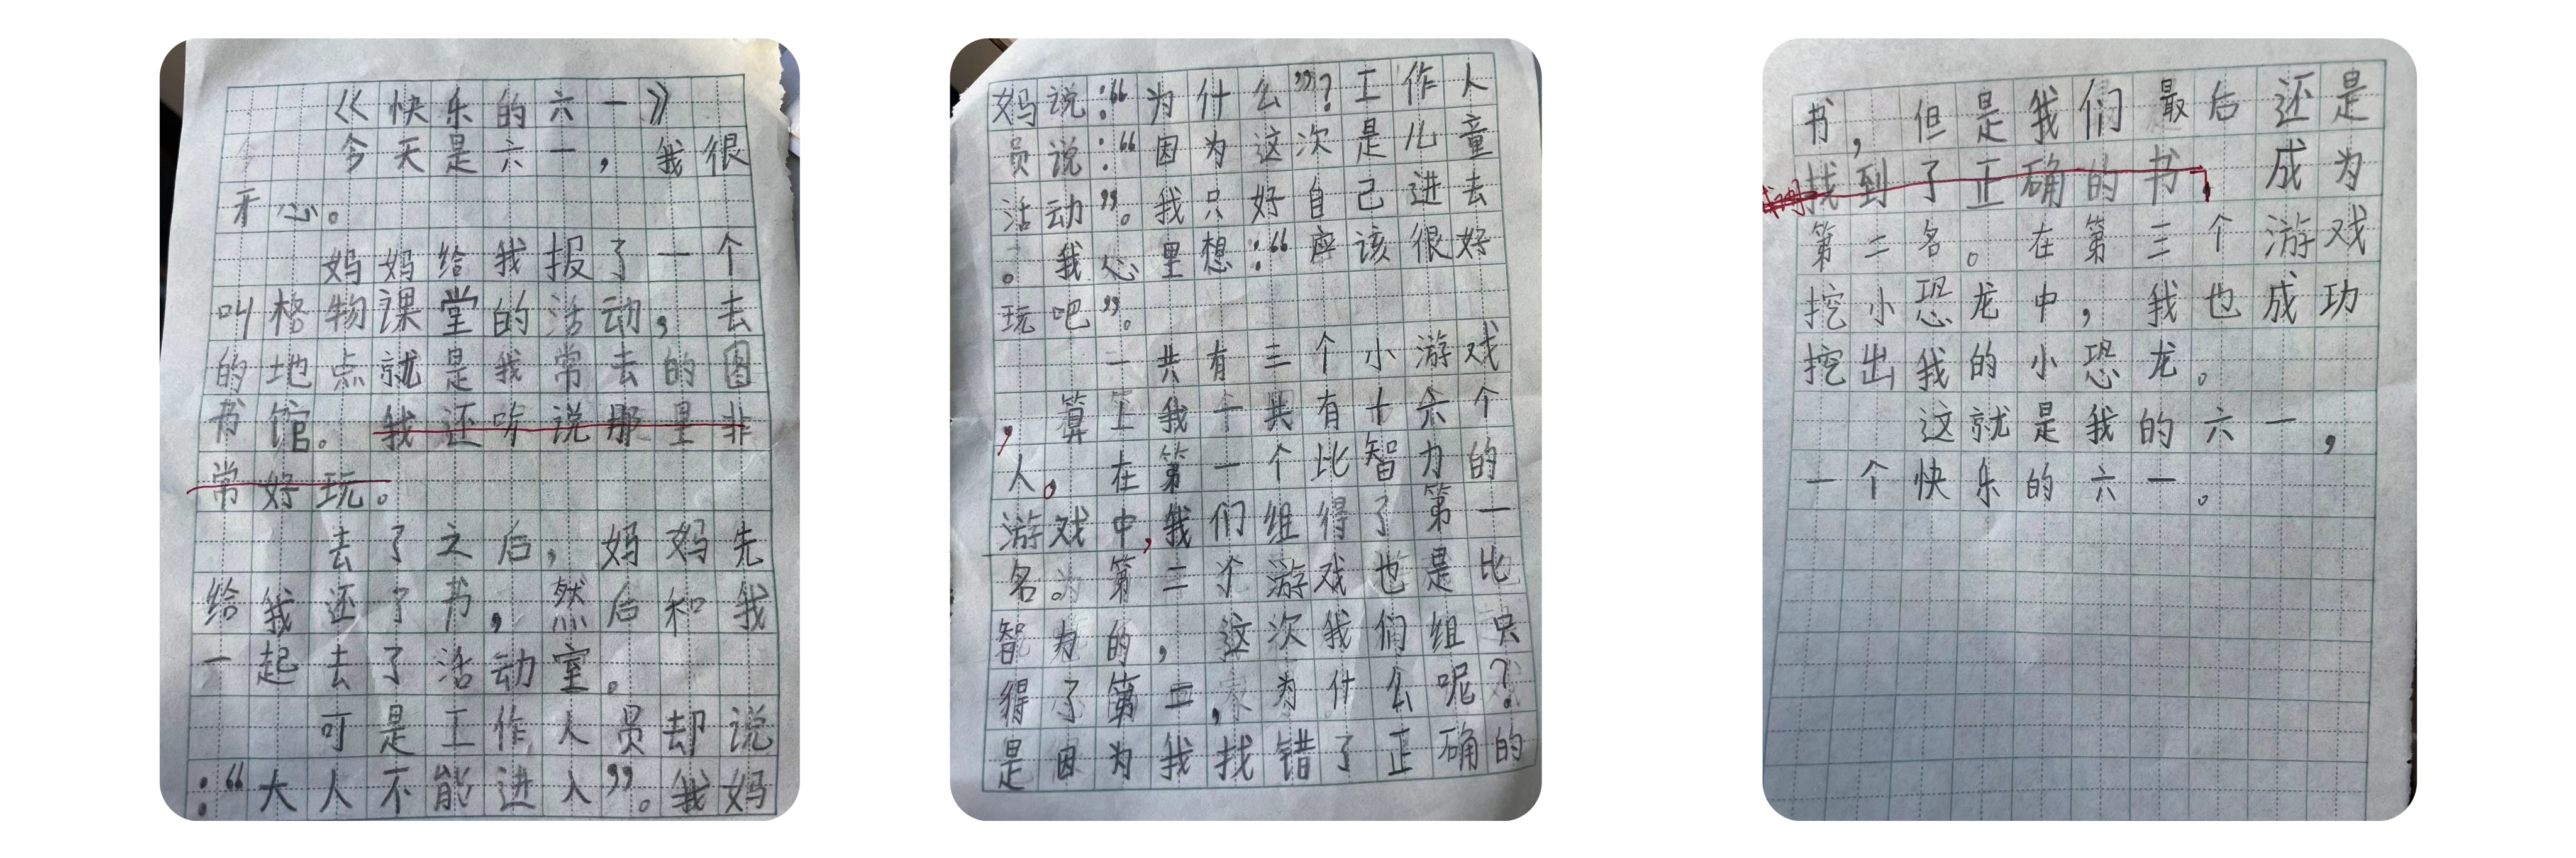 《快乐的六一》
今天是六一，我很
开心。
妈妈给我报了一个
叫格物课堂的活动，去
的地点就是我常去的图
书馆。我还听说那里非
常好玩。
去了之后，妈妈先
给我还了书，然后和我
一起去了活动室。
可是工作人员却说
：“大人不能进入”。我妈
妈说：“为什么”？工作人
员说：“因为这次是儿童
活动”。我只好自己进去
。我心里想：“应该很好
玩吧”。
一共有三个小游戏
，算上我一共有十六个
人。在第一个比智力的
游戏中，我们组得了第一
名。第二个游戏也是比
智力的，这次我们组只
得了第二，为什么呢？
是因为我找错了正确的
书，但是我们最后还是
找到了正确的书，成为
第二名。在第三个游戏
挖小恐龙中，我也成功
挖出我的小恐龙。
这就是我的六一，
一个快乐的六一。